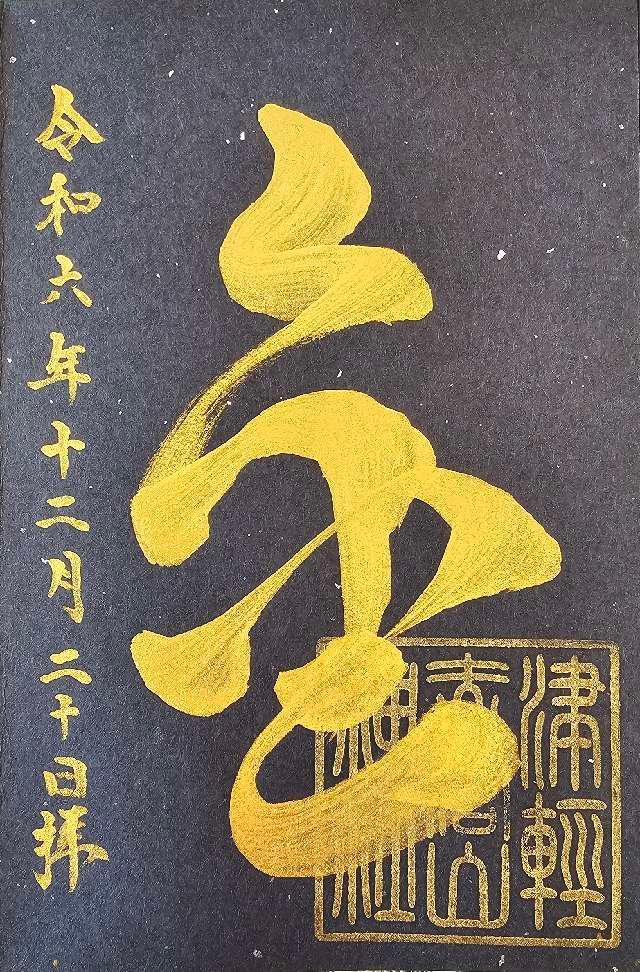 津輕
赤倉山
神社
令和六年十二月二十日拝